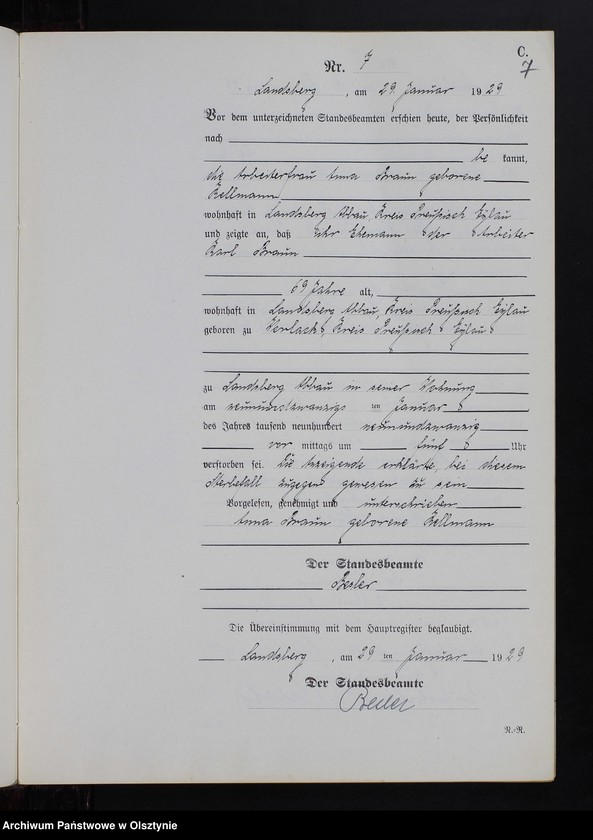 C.
7
Nr. 7
Landsberg, am 29 Januar 1929
Vor dem unterzeichneten Standesbeamten erschien heute, der Persönlichkeit
nach
be kannt,
die Arbeiterfrau Anna Braun geborene
wohnhaft in Landsberg Abbau, Kreis Preußisch Eylau
und zeigte an, daß ihr Ehemann der Arbeiter
Karl Braun
69 Jahre alt,
wohnhaft in Landsberg Abbau, Kreis Preußisch Eylau
geboren zu Worlack, Kreis Preußisch Eylau
zu Landsberg Abbau in seiner Wohnung
am neunundzwanzigs ten Januar
des Jahres tausend neunhundert neunundzwanzig
vor mittags um fünf Uhr
verstorben sei. Die Anzeigende erklärte, bei diesem
Sterbefall zugegen gewesen zu sein
Vorgelesen, genehmigt und unterschrieben
Anna Braun geborene
Der Standesbeamte
Die Übereinstimmung mit dem Hauptregister beglaubigt.
Landsberg, am 29 ten Januar 1929
Der Standesbeamte
N.-R.
Archiwum Państwowe w Olsztynie